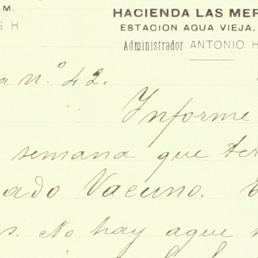 M. HACIENDA LAS MER
S H ESTACION AGUA VIEJA,
Administrador ANTONIO H
a nº. 42.
Informe
semana que ter
ado Vacuno.
s. No hay aque